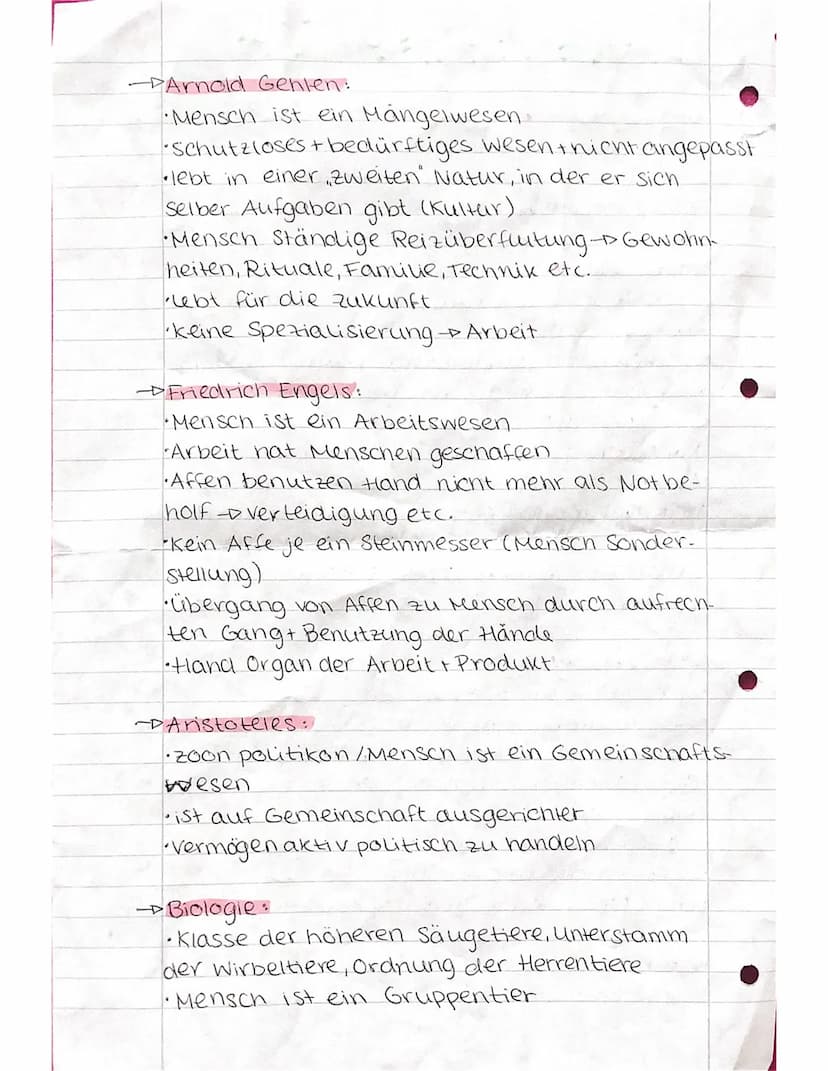 → Arnold Gehlen:
· Mensch ist ein Mängelwesen
· schutzloses + bedürftiges Wesen + nicht angepasst
· lebt in einer „zweiten" Natur, in der er sich
selber Aufgaben gibt (Kultur)
· Mensch Ständige Reizüberflutung → Gewohn-
heiten, Rituale, Familie, Technik etc.
· lebt für die Zukunft
· keine Spezialisierung → Arbeit
→ Friedrich Engels:
· Mensch ist ein Arbeitswesen
· Arbeit hat Menschen geschaffen
· Affen benutzen Hand nicht mehr als Notbe-
holf → Verteidigung etc.
· Kein Affe je ein Steinmesser (Mensch Sonder-
stellung)
· Übergang von Affen zu Mensch durch aufrech-
ten Gang + Benutzung der Hände
· Hand Organ der Arbeit + Produkt
→ Aristoteles:
· zoon politikon / Mensch ist ein Gemeinschafts-
wesen
· ist auf Gemeinschaft ausgerichtet
· vermögen aktiv politisch zu handeln
→ Biologie:
· Klasse der höheren Säugetiere, Unterstamm
der Wirbeltiere, Ordnung der Herrentiere
· Mensch ist ein Gruppentier